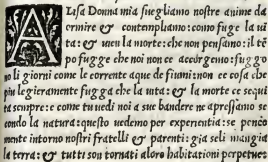 ALisa Donna mia suegliamo nostre anime da
ormire & contempliamo: como fuge la ui
ta: & uien la morte: che non pensano: il tē
po fugge che noi non ce accorgemo: fuggo
no li giorni come le corrente aque de fiumi: non ce cosa che
piu legieramente fugga che la uita: & la morte ce sequi
ta sempre: e come tu uedi noi a sue bandere ne apressiano se
condo la natura: questo uedemo per experientia: se penco
mente intorno nostri fratelli & parenti: gia seli mangia
la terra: & tutti son tornati aloro habitationi perpetue